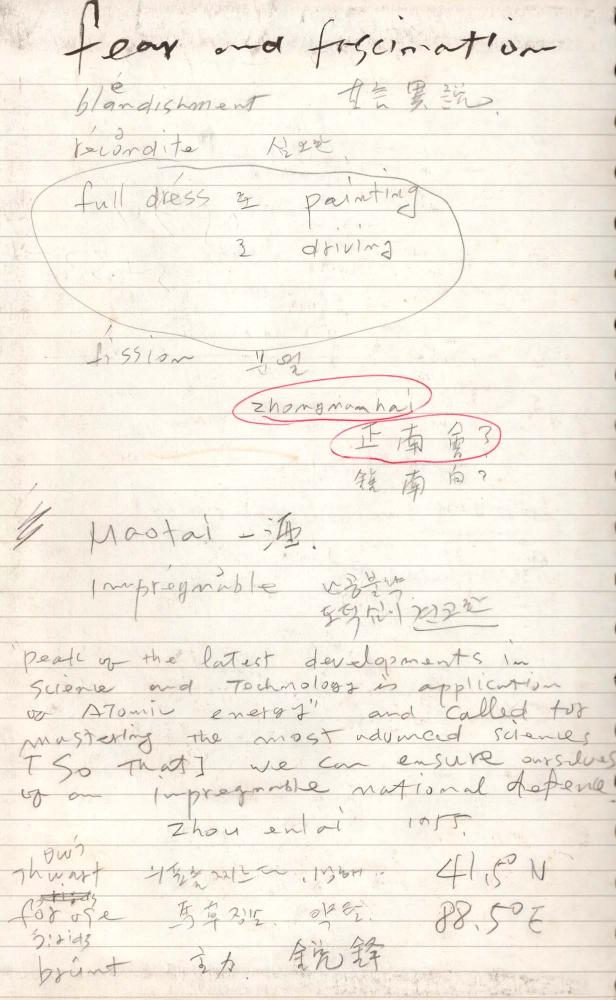 fear and fiscination
é
blandishment 甘言異說
ə
récondite 심오한
full dréss로 painting
로 driving
fission 분열
zhongnamhai
正南會?
鎭南向?
Maotai - 酒.
ə
impregnable 난공불낙
도덕심이 견고한
"peak of the latest developments in
science and Technology is application
of ATomic energy" and called for
mastering the most advanced sciences
[So That] we can ensure ourselves
of an impregnable national defence
Zhou enlai 1955.
Thwart 41.5° N
forage 약탈. 88.5° E
brunt 主力 銳鋒